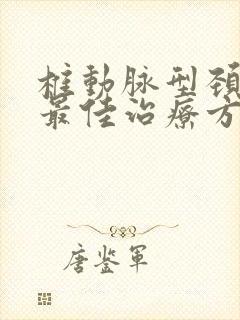 椎動脉型頚
最佳治療方
唐鉴軍